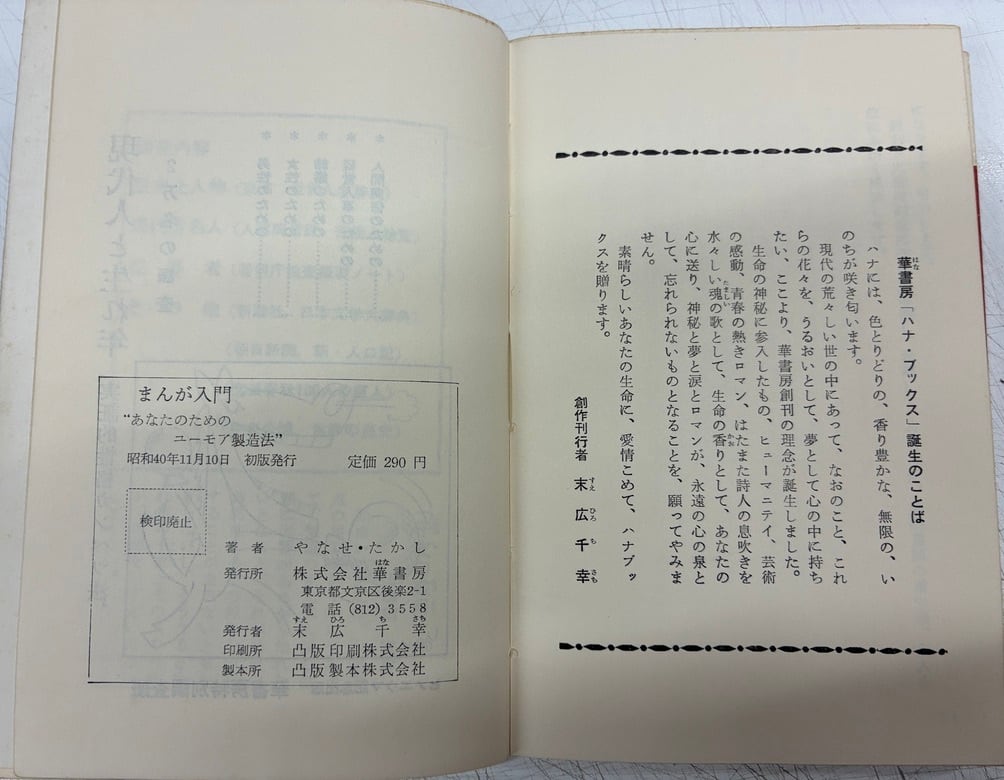 華書房「ハナ・ブックス」誕生のことば
はな
ハナには、色とりどりの、香り豊かな、無限の、い
のちが咲き匂います。
現代の荒々しい世の中にあって、なおのこと、これ
らの花々を、うるおいとして、夢として心の中に持ち
たい、ここより、華書房創刊の理念が誕生しました。
生命の神秘に参入したもの、ヒューマニテイ、芸術
の感動、青春の熱きロマン、はたまた詩人の息吹きを
水々しい魂の歌として、生命の香りとして、あなたの
たましい
かお
心に送り、神秘と夢と涙とロマンが、永遠の心の泉と
して、忘れられないものとなることを、願ってやみま
せん。
素晴らしいあなたの生命に、愛情こめて、ハナブッ
クスを贈ります。
創作刊行者 末広千幸
すえ ひろ ち さち
まんが入門
“あなたのための
ユーモア製造法”
昭和40年11月10日 初版発行 定価 290 円
検印廃止
著者 やなせ・たかし
はな
発行所 株式会社華書房
東京都文京区後楽2-1
電話 (812) 3558
すえ ひろ ち さち
発行者 末広千幸
印刷所 凸版印刷株式会社
製本所 凸版製本株式会社
現代人と生れ年